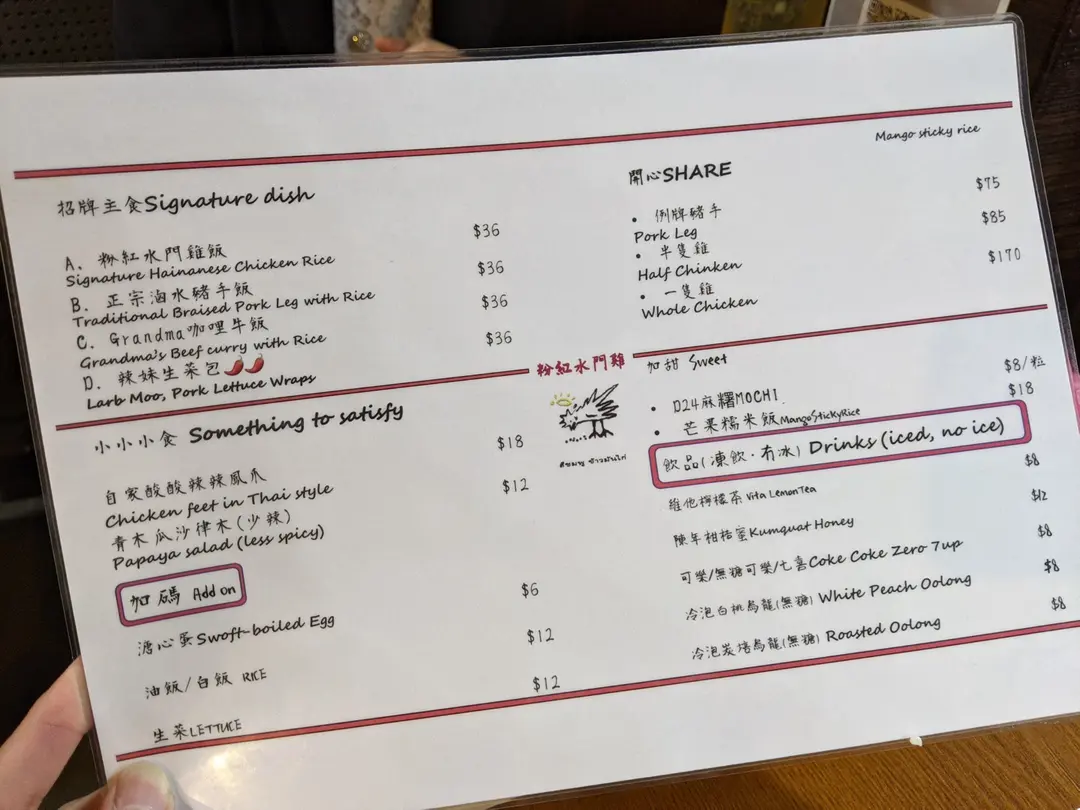 招牌主食Signature dish
A. 粉紅水門雞飯 $36
Signature Hainanese Chicken Rice
B. 正宗滷水豬手飯 $36
Traditional Braised Pork Leg with Rice
C. Grandma咖哩牛飯 $36
Grandma's Beef curry with Rice
D. 辣妹生菜包 $36
Larb Moo, Pork Lettuce Wraps
小小小食 Something to satisfy
自家酸酸辣辣鳳爪 $18
Chicken feet in Thai style
青木瓜沙律木(少辣) $12
Papaya salad (less spicy)
加碼 Add on
溏心蛋Swoft-boiled Egg $6
油飯/白飯 RICE $12
生菜LETTUCE $12
粉紅水門雞
Mango sticky rice
開心SHARE
• 例牌豬手 $75
Pork Leg
• 半隻雞 $85
Half Chinken
• 一隻雞 $170
Whole Chicken
加甜 Sweet
• D24麻糬MOCHI $8/粒
• 芒果糯米飯MangoStickyRice $18
飲品(凍飲·冇冰) Drinks (iced, no ice)
維他檸檬茶Vita LemonTea $8
陳年柑桔蜜Kumquat Honey $12
可樂/無糖可樂/七喜Coke Coke Zero 7up $8
冷泡白桃烏龍(無糖) White Peach Oolong $8
冷泡炭焙烏龍(無糖) Roasted Oolong $8